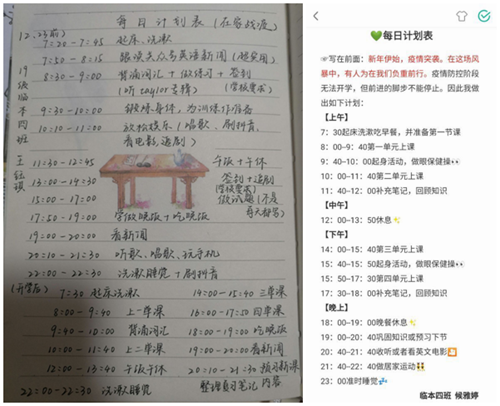 每日计划表（在家战疫）
12.23前）
7:20－7:45 起床、洗漱
7:50－8:15 跟读公众号英语新闻（超实用）
8:30－9:00 背诵词汇＋做练习＋签到
（听taylor支撑）（学校要求）
9:30－10:00 锻炼身体，为训练作准备
10:10－11:00 放松娱乐（唱歌、刷抖音、
看电影、追剧）
19级临本四班
王钰琪
11:30－12:45 午饭＋午休
13:00－14:30 签到＋追剧
（学校要求）
15:00－17:00 做试题（不是
每天都有）
17:50－19:00 学做晚饭＋吃晚饭
19:00－20:00 看新闻
20:10－21:30 听歌、唱歌、玩手机
22:00－22:30 洗漱睡觉＋刷抖音
（开学后）
7:30 起床洗漱
8:00－9:40 上一单课
9:40－10:00 背诵词汇
10:00－11:40 上二单课
12:00－13:40 午饭午休
14:00－15:40 三单课
16:00－17:50 四单课
18:00－19:00 吃晚饭
19:00－20:00 看新闻
20:10－21:30 预习新课
内容
22:00－22:30 洗漱睡觉
整理复习笔记
💚每日计划表
☞写在前面：新年伊始，疫情突袭。在这场风
暴中，有人为在我们负重前行。疫情防控阶段
无法开学，但前进的脚步不能停止。因此我做
出如下计划：
【上午】
7：30起床洗漱吃早餐，并准备第一节课
8：00–9：40第一单元上课
9：40–10：00起身活动，做眼保健操👀
10：00–11：40第二单元上课
11：40–12：00补充笔记，回顾知识
【中午】
12：00–13：50休息✨
【下午】
14：00–15：40第三单元上课
15：40–15：50起身活动，做眼保健操👀
15：50–17：30第四单元上课
17：30–18：00补充笔记，回顾知识
【晚上】
18：00–19：00晚餐休息✨
19：00–20：40巩固知识或预习下节
20：40–21：40收听或者看英文电影🎦
21：40–22：40做居家运动👯
23：00准时睡觉💤
临本四班 候雅婷